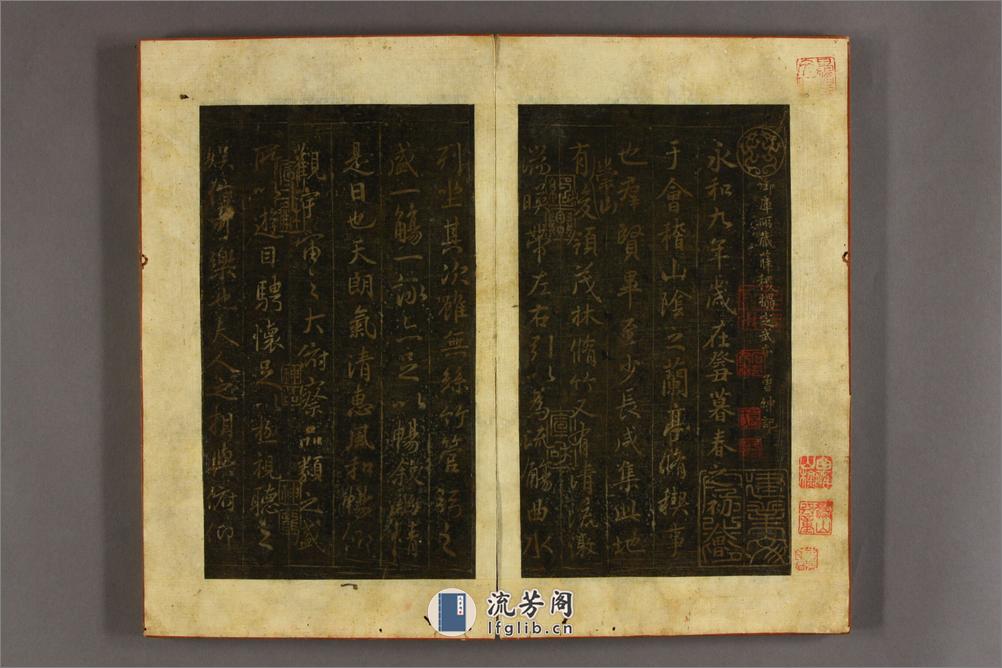 御府所藏薛稷摹定武本 曾紳記
永和九年歲在癸暮春之初會
于會稽山陰之蘭亭脩稧事
也羣賢畢至少長咸集此地
有崇山峻領茂林脩竹又有清流激
湍暎帶左右引以為流觴曲水
列坐其次雖無絲竹管弦之
盛一觴一詠亦足以暢敘幽情
是日也天朗氣清惠風和暢仰
觀宇宙之大俯察品類之盛
所以遊目騁懷足以極視聽之
娛信可樂也夫人之相與俯仰
流芳阁
lfglib.cn